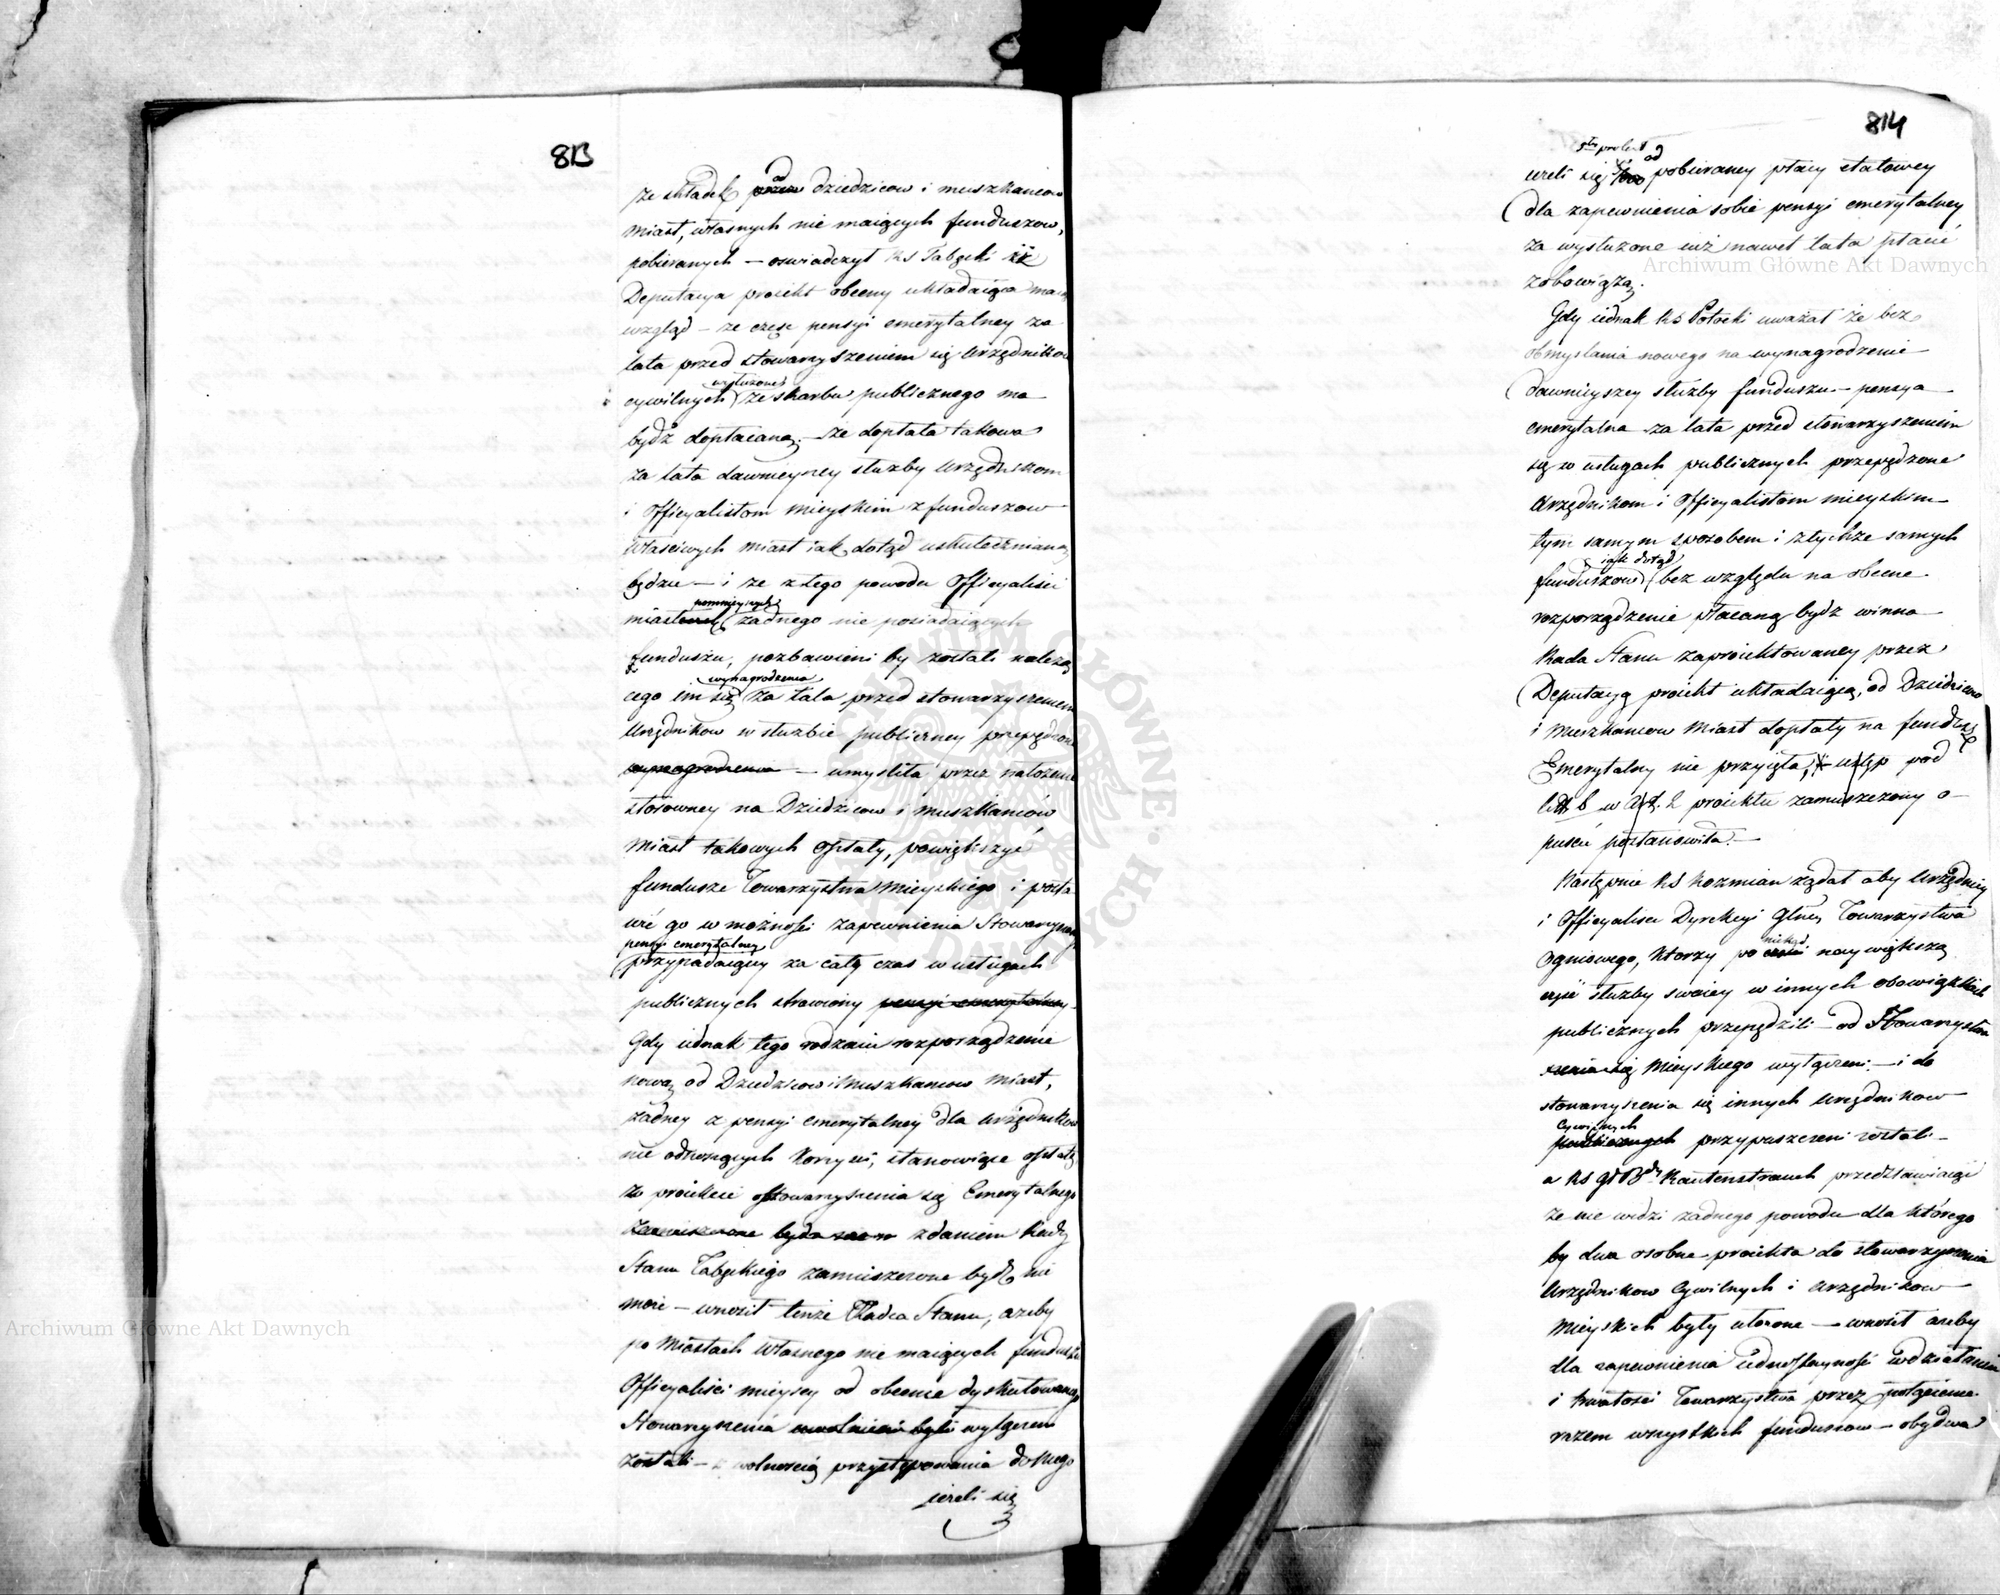 813
ze składek od dziedzicow i muszkancow
miast, własnych nie maiących funduszow,
pobieranych – oswiadczył RS Tabęcki iż
Deputacya proiekt obecny układaiąca maiąc
wzgląd – ze częsc pensyi emerytalney za
lata przed stowarzyszeniem się urzędnikow
wysłużone
cywilnych ze skarbu publicznego ma
bydź dopłacaną. – Ze dopłata takowa
za lata dawnieyszey służby urzędnikom
i Officyalistom mieyskim z funduszow
właściwych miast iak dotąd uskutecznianą
będzie – i ze z tego powodu Officyalisci
pomnieyszych
miast żadnego nie posiadaiących
funduszu, pozbawieni by zostali należą
wynagrodzenia
cego im się za lata przed stowarzyszeniem
Urzędnikow w służbie publiczney przepędzone
wynagrodzenia – umysliła przez nałożenie
stosowney na Dziedzicow i muszkancow
miast takowych opłaty, powiększyć
fundusze Towarzystwa Mieyskiego i posta
wić go w możności zapewnienia Stowarzyszon
pensyi emerytalney
przypadaiącey za cały czas w usługach
publicznych strawiony pensyi emerytalney.
Gdy iednak tego rodzaiu rozporządzenie
nową od Dziedzicow i Muszkancow miast,
żadney z pensyi emerytalney dla urzędnikow
nie odnoszących korzyści, stanowiące opłatę
w proiekcie Stowarzyszenia się Emerytalnego
zdaniem Radcy
Stanu Tabęckiego zamieszczone bydź nie
może – wnosił tenże Radca Stanu, azeby
po Miastach własnego nie maiących funduszu
Officyalisci mieyscy od obecnie dyskutowanego
Stowarzyszenia uwolnieni byli wyłączeni
zostali – z wolnością przystępowania do niego
ieżeli się
814
5ty procent
ieżeli się od pobieraney płacy etatowey
dla zapewnienia sobie pensyi emerytalney
za wysłużone iuż nawet lata płacić
zobowiążą.
Gdy iednak RS Potocki uważał że bez
obmyslania nowego na wynagrodzenie
dawnieyszey służby funduszu – pensya
emerytalna za lata przed stowarzyszeniem
się w usługach publicznych przepędzone
Urzędnikom i Officyalistom mieyskim
tym samym sposobem i z tychże samych
iak dotąd
funduszow bez względu na obecne
rozporządzenie płacaną bydź winna
Rada Stanu zaproiektowaney przez
Deputacyą proiekt układaiącą, od Dziedzicow
i Muszkancow Miast dopłaty na fundusz
Emerytalny nie przyięła, ustęp pod
lit. b w Art. 2 proiektu zamieszczony o-
puscić postanowiła. –
Następnie RS Kozmian żądał aby Urzędnicy
i Officyalisci Dyrekcyi Głney Towarzystwa
Ogniowego, ktorzy po naywiększą
część służby swoiey w innych obowiązkach
publicznych przepędzili – od Stowarzyszenia
się Mieyskiego wyłączeni – i do
stowarzyszenia się innych Urzędnikow
Cywilnych
publicznych przypuszczeni zostali –
a RS Gł Bdy Rautenstrauch przedstawiaiąc
ze nie widzi żadnego powodu dla którego
by dwa osobne proiekta do stowarzyszenia
Urzędnikow Cywilnych i Urzędnikow
Mieyskich były ułożone – wnosił azeby
dla zapewnienia iednostayności w działaniu
i trwałości Towarzystwa przez połączenie
razem wszystkich funduszow – obydwa
Archiwum Główne Akt Dawnych
Archiwum Główne Akt Dawnych